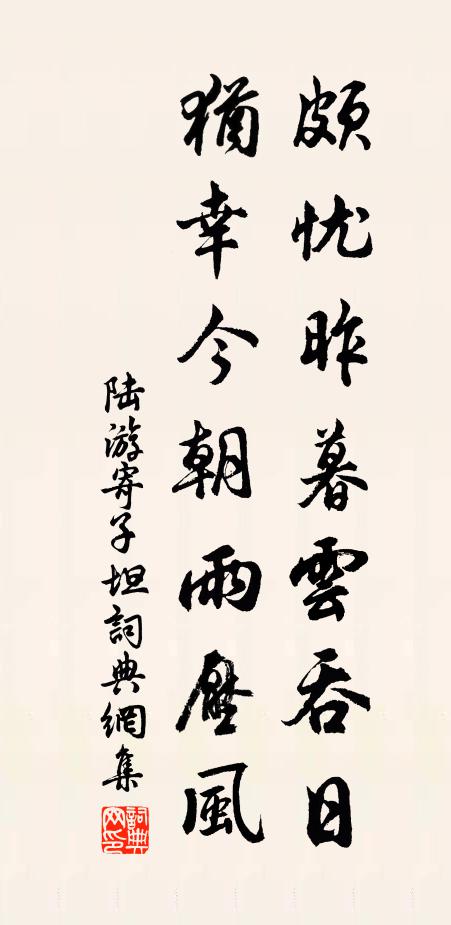 頗忧昨暮雲吞日
猶幸今朝雨壓風
陆游寄子坦詞典網集
詞典網印